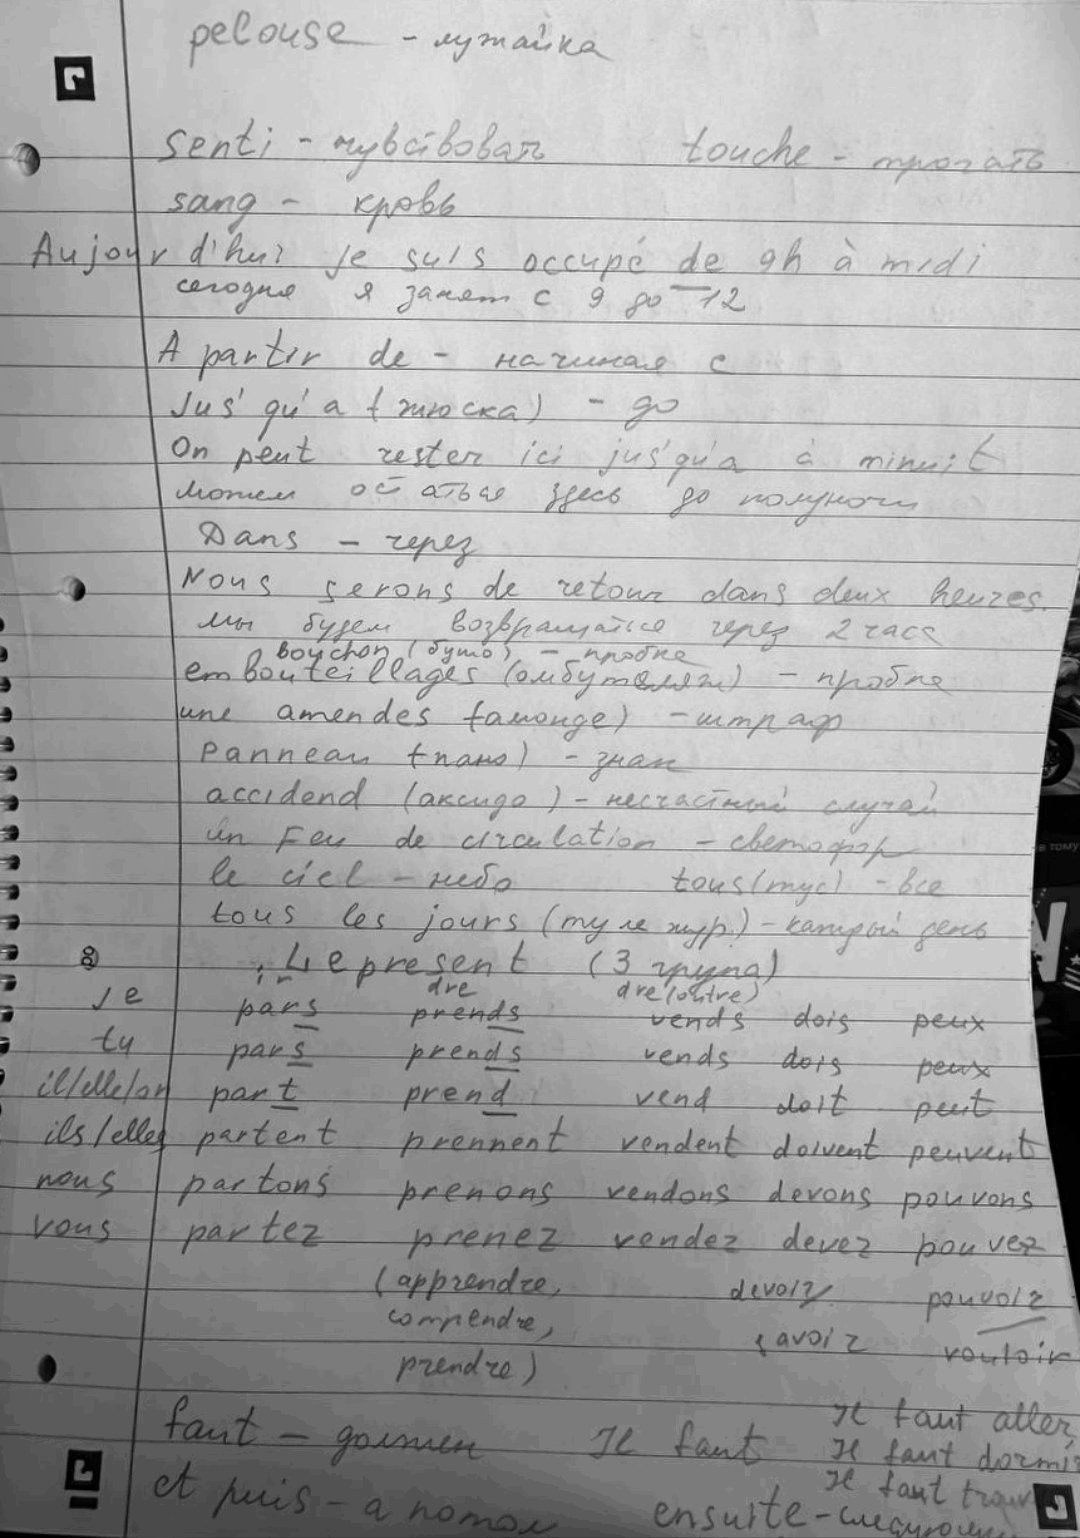 pelouse - лужайка
senti - чувствовать touche - трогать
sang - кровь
Aujour d'hui je suis occupé de 9h à midi
сегодня я занят с 9 до 12
A partir de - начиная с
Jus'qu'a (жюска) - до
On peut rester ici jus'qu'a à minuit
можем остаться здесь до полуночи
Dans - через
Nous serons de retour dans deux heures.
мы будем возвращаться через 2 часа
bouchon (бушо) - пробка
embouteillages (омбутеляж) - пробка
une amendes (амонде) - штраф
Panneau (пано) - знак
accidend (аксидо) - несчастный случай
un Feu de circulation - светофор
le ciel - небо tous (тус) - все
tous les jours (ту ле жур.) - каждый день
Le present (3 група)
dre dre (outre)
je pars prends vends dois peux
tu pars prends vends dois peux
il/elle/on part prend vend doit peut
ils/elles partent prennent vendent doivent peuvent
nous partons prenons vendons devons pouvons
vous partez prenez vendez devez pouvez
(apprendre, devoir pouvoir
comprendre, savoir vouloir
prendre)
faut - должен Il faut Il faut aller,
Il faut dormir
Il faut trouv
et puis - а потом ensuite -